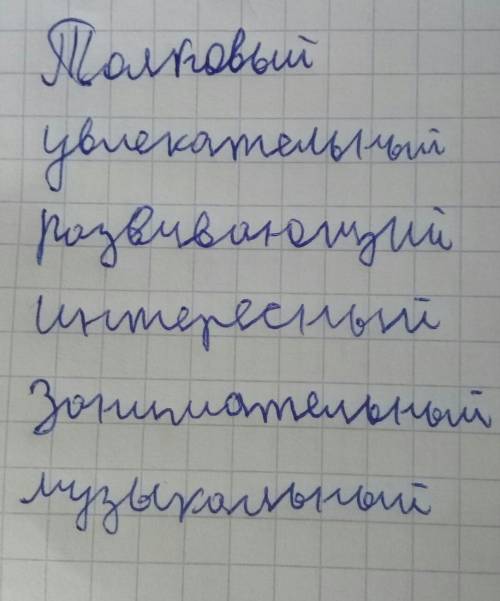 Толковый
увлекательный
развивающий
интересный
Занимательный
музыкальный